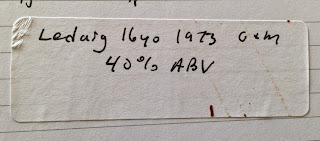 Ledaig 16yo 1973 G&M
40% ABV